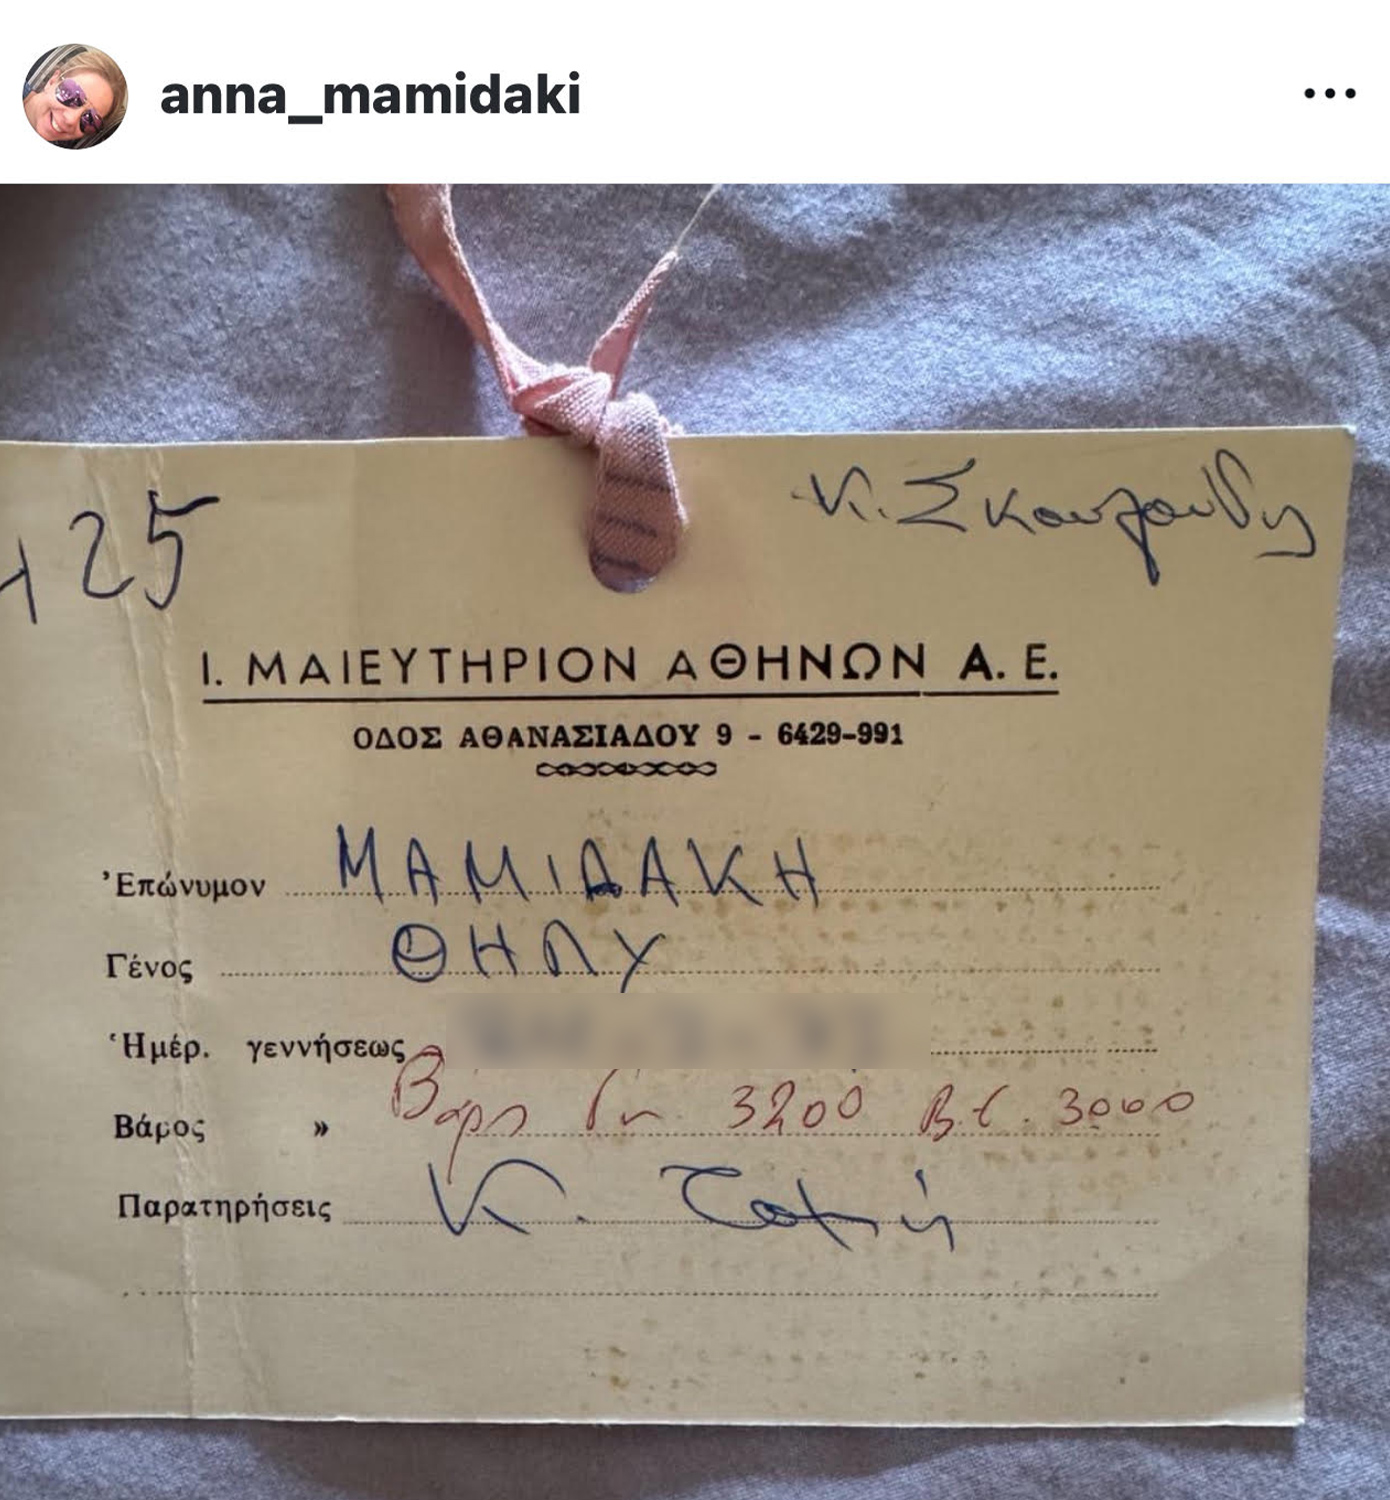 anna_mamidaki
425
Κ. Σκουρούδης
Ι. ΜΑΙΕΥΤΗΡΙΟΝ ΑΘΗΝΩΝ Α. Ε.
ΟΔΟΣ ΑΘΑΝΑΣΙΑΔΟΥ 9 - 6429-991
Ἐπώνυμον ΜΑΜΙΔΑΚΗ
Γένος ΘΗΛΥ
Ἡμέρ. γεννήσεως
Βάρος » Βάρος Γν. 3200 Β.Ε. 3000
Παρατηρήσεις Κ.